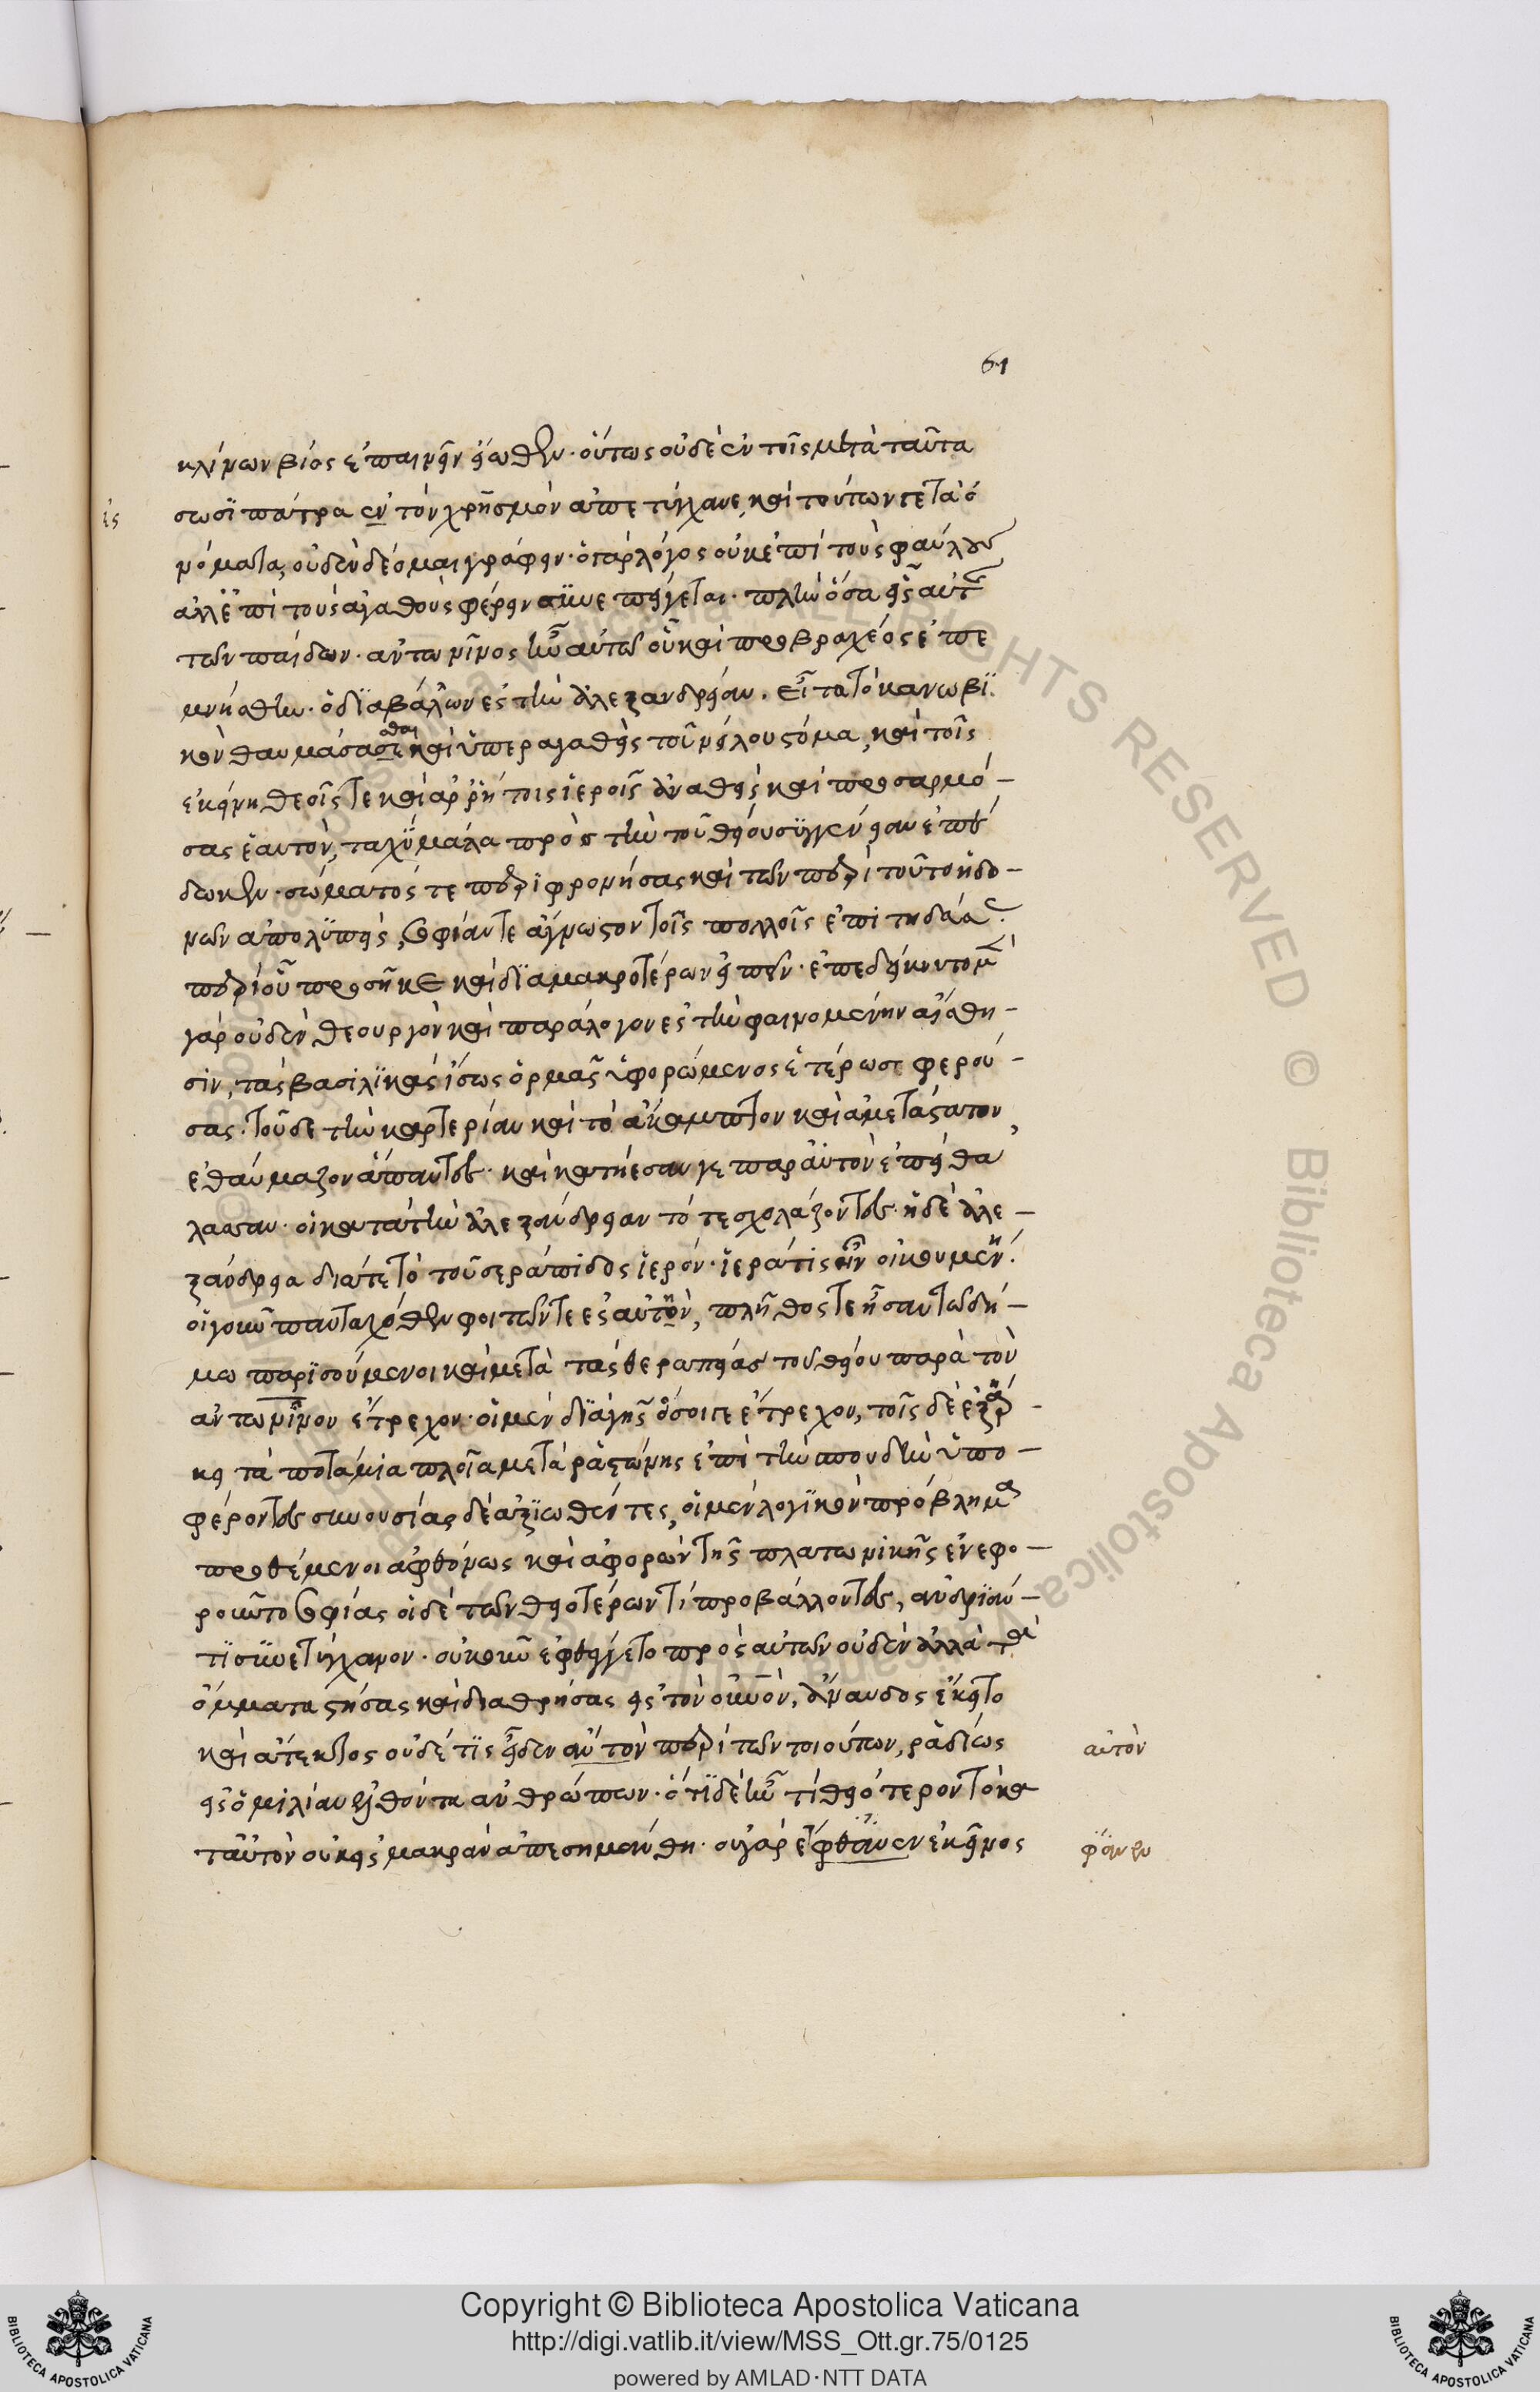 61
κλίνων βίος ἐπαινεῖν εἴωθεν. οὕτως οὐδὲ ἐν τοῖς μετὰ ταῦτα
σωσϊπάτρα ἐν τὸν χρησμὸν ἀπετύγχανε, καὶ τούτων γε τὰ ὀ
νόματα, οὐδὲν δέομαι γράφειν. ὁ γὰρ λόγος οὐκ ἐπὶ τοὺς φαύλους
ἀλλ' ἐπὶ τοὺς ἀγαθοὺς φέρειν ἀνεπείγεται. πλὴν ὅσα εἷς αὐτῆς
τῶν παίδων. ἀντωνῖνος ἦν αὐτῶ οὗ καὶ προβραχέος ἐπε
μνήσθην. ὁ διαβάλων ἐς τὴν ἀλεξανδρείαν. εἶτα τὸ κανωβϊ
κὸν θαυμάσασε σθαι καὶ ὑπεραγαθεὶς τοῦ νείλου στόμα, καὶ τοῖς
ἐκείνη θεοῖς τε καὶ ἀρρήτοις ἱεροῖς ἀναθεὶς καὶ προσαρμό-
σας ἑαυτὸν, ταχὺ μάλα πρὸς τὴν τοῦ θείου συγγένειαν ἐπέ
δωκεν. σώματός τε περιφρονήσας καὶ τῶν περὶ τοῦτο ἡδο-
νῶν ἀπολϋπεὶς, σοφίαν τε ἄγνωστον τοῖς πολλοῖς ἐπιτηδεύσας.
περὶ οὗ προσῆκε καὶ διὰ μακροτέρων εἰπεῖν. ἐπεδείκνυτο μὲν
γὰρ οὐδὲν θεουργὸν καὶ παράλογον ἐς τὴν φαινομένην αἴσθη-
σιν, τὰς βασιλϊκὰς ἴσως ὁρμὰς ὑφορώμενος ἑτέρωσε φερού-
σας. τοῦδε τὴν καρτερίαν καὶ τὸ ἄκαμπτον καὶ ἀμετάστατον,
ἐθαύμαζον ἅπαντες. καὶ κατῄεσαν γε παρ' αὐτὸν ἐπὶ θά
λασσαν. οἱ κατὰ τὴν ἀλεξάνδρειαν τότε σχολάζοντες. ἡ δὲ ἀλε-
ξάνδρεια διά γε τὸ τοῦ σεράπιδος ἱερὸν. ἱερά τις ἦν οἰκουμένη.
οἱ γοῦν πανταχόθεν φοιτῶντες ἐς αὐτὴν, πλῆθός τε ἦσαν τῶ δή-
μω παρϊσούμενοι καὶ μετὰ τὰς θεραπείας τοῦ θείου παρὰ τὸν
ἀντωνῖνον ἔτρεχον. οἱ μὲν διὰ γῆς ὅσοι γε ἔτρεχον, τοῖς δὲ ἐξήρ-
κει τὰ ποτάμια πλοῖα μετὰ ῥαστώνης ἐπὶ τὴν σπουδὴν ὑπο-
φέροντες συνουσίας δὲ ἀξϊωθέντες, οἱ μὲν λογϊκὸν πρόβλημα
προθέμενοι ἀφθόνως καὶ ἀφορῶν τῆς πλατωνικῆς ἐνεφο-
ροῦντο σοφίας οἱ δὲ τῶν θειοτέρων τί προβάλλοντες, ἀνδρϊάν-
τϊ συνετύγχανον. οὐκοῦν ἐφθέγγετο πρὸς αὐτῶν οὐδὲν ἀλλὰ τὰ
ὄμματα στήσας καὶ διαθρήσας εἰς τὸν οὐνὸν, ἄναυδος ἔκειτο
καὶ ἄτεγκτος οὐδέ τϊς εἶδεν αὐτὸν περὶ τῶν τοιούτων, ῥαδίως
εἰς ὁμιλίαν ἐλθόντα ἀνθρώπων. ὅτϊ δὲ ἦν τί θειότερον τὸ κα
τ' αὐτὸν οὐκ εἰς μακρὰν ἀπεσημάνθη. οὐ γὰρ ἔφθανεν ἐκεῖνος
ἐς
αὐτὸν
φθάνειν
Copyright © Biblioteca Apostolica Vaticana
http://digi.vatlib.it/view/MSS_Ott.gr.75/0125
powered by AMLAD·NTT DATA
BIBLIOTECA APOSTOLICA VATICANA
BIBLIOTECA APOSTOLICA VATICANA